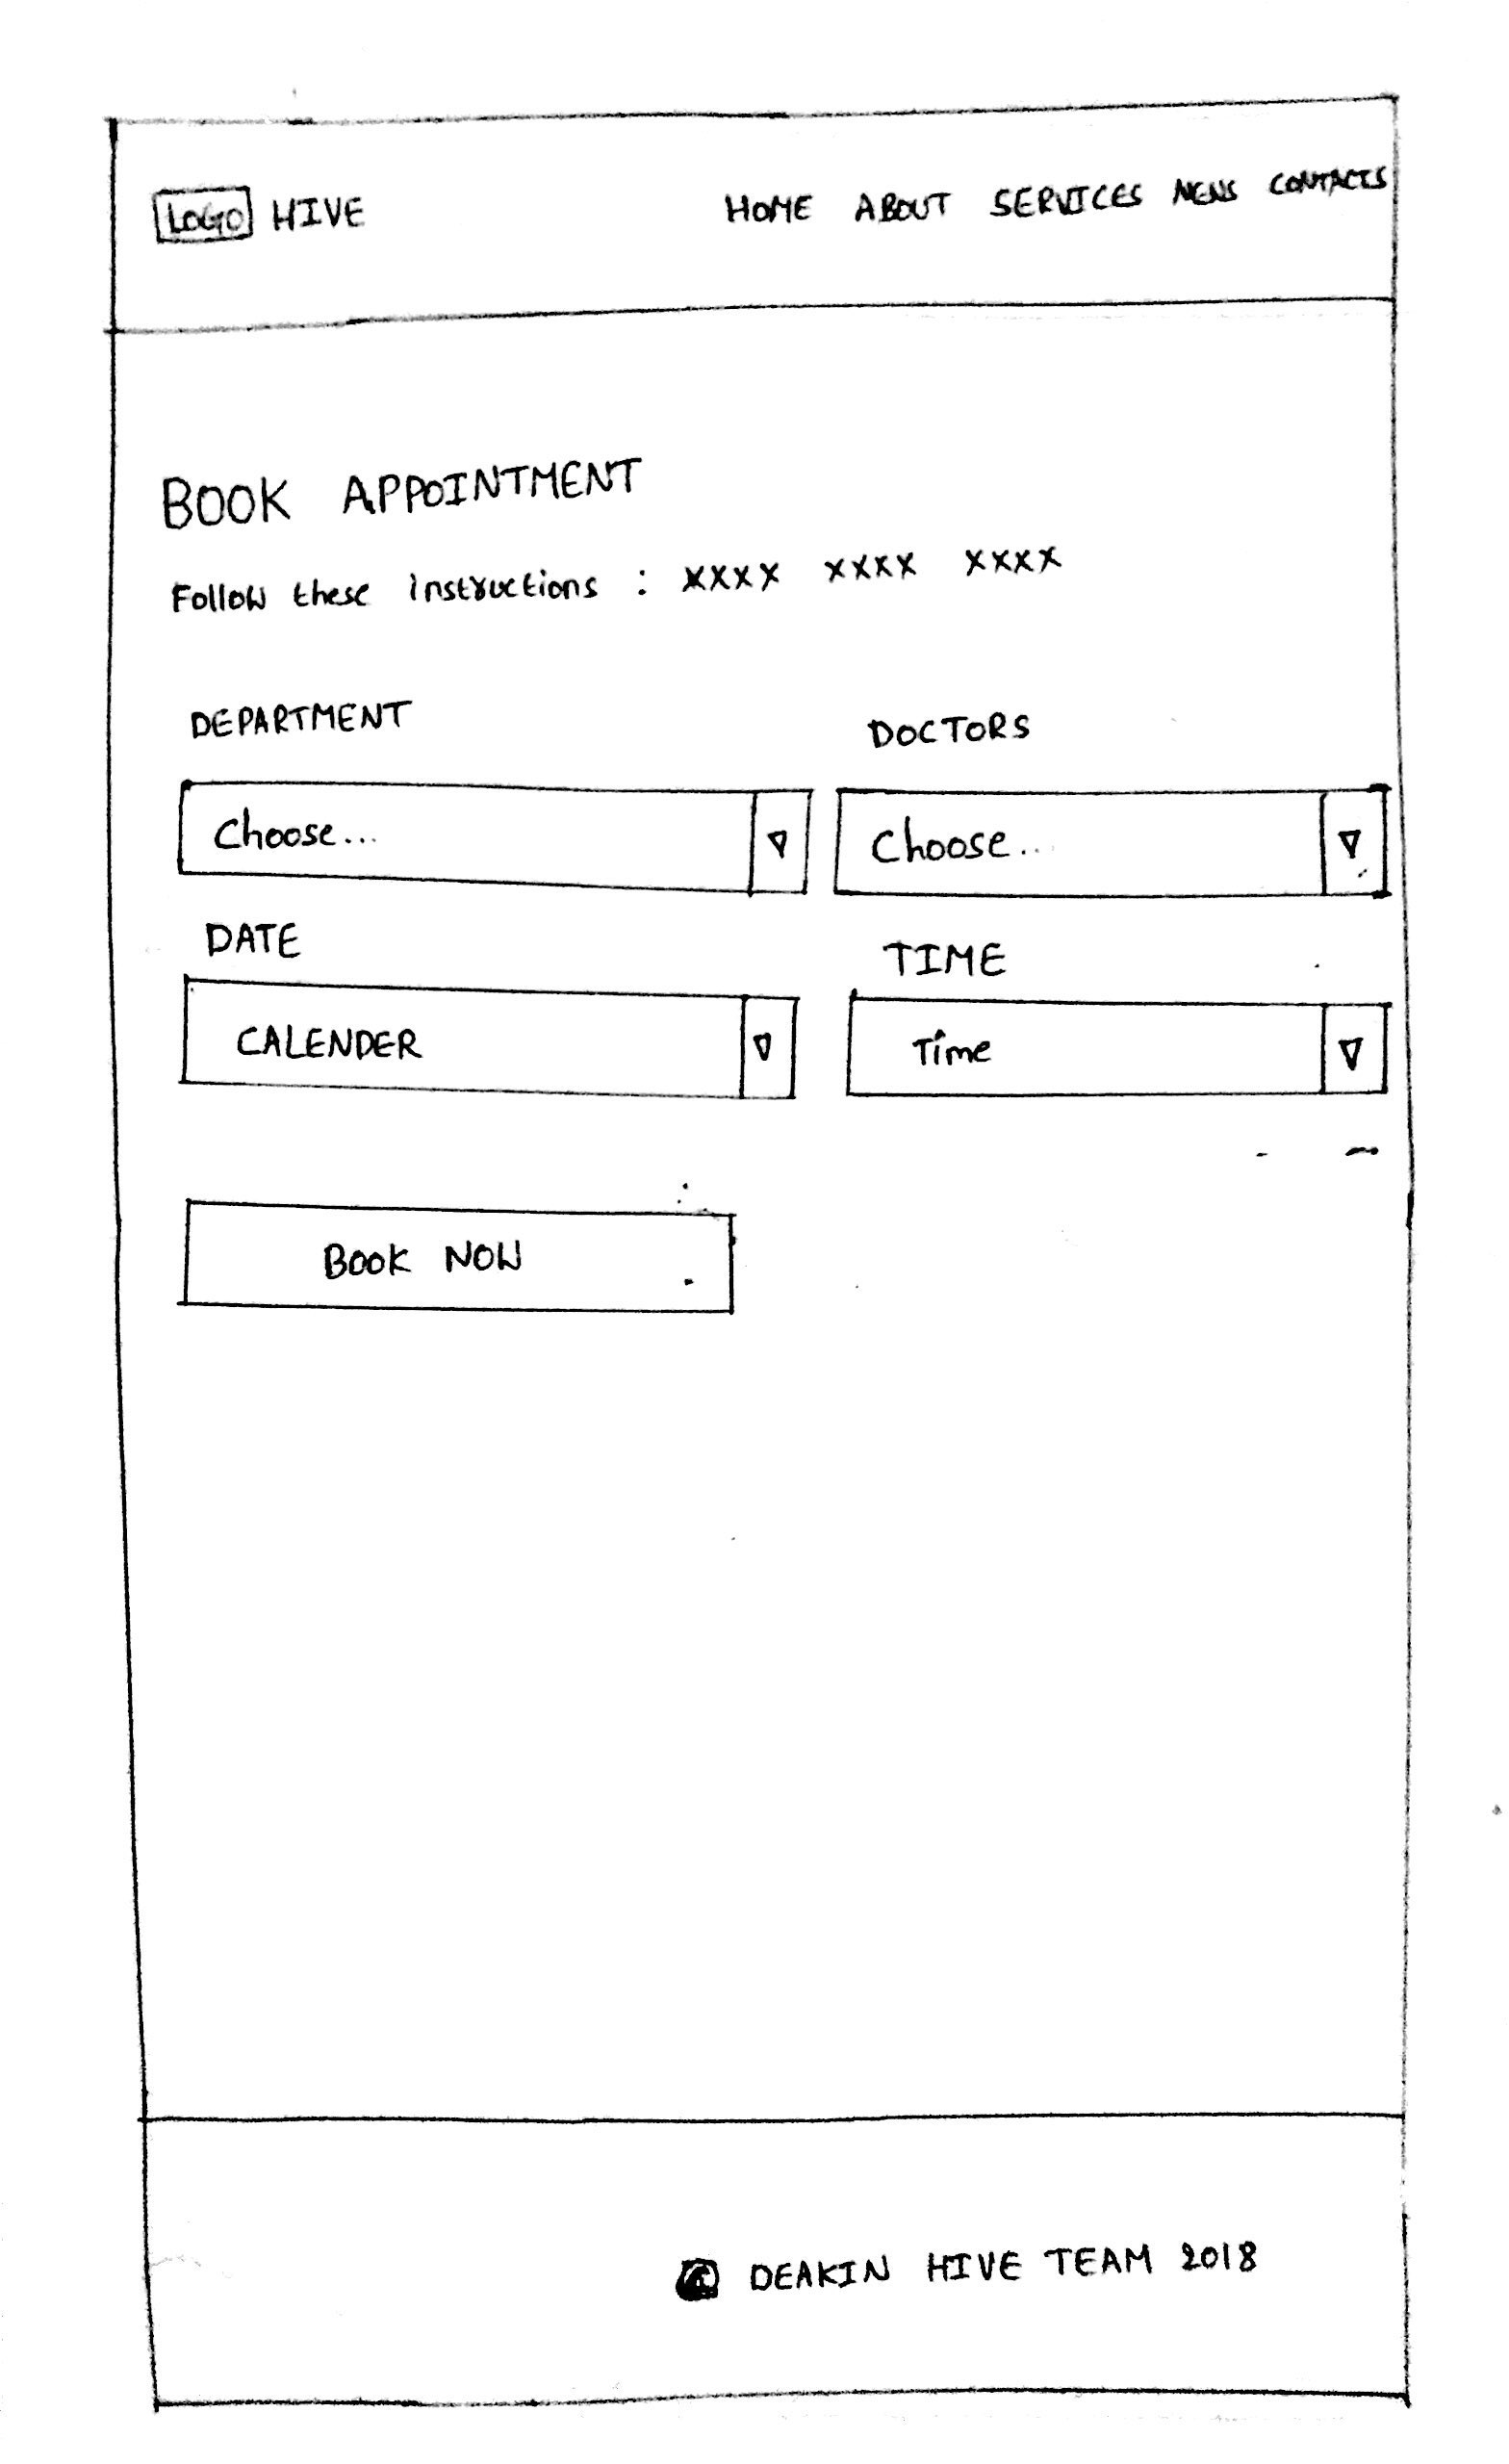 LOGO HIVE HOME ABOUT SERVICES NEWS CONTACTS
BOOK APPOINTMENT
Follow these instructions : xxxx xxxx xxxx
DEPARTMENT DOCTORS
Choose... Choose...
DATE TIME
CALENDER Time
BOOK NOW
© DEAKIN HIVE TEAM 2018